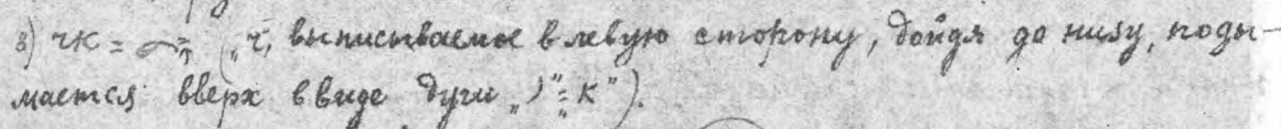 8) чк = („ч", выписываемое в левую сторону, дойдя до низу, поды-
мается вверх в виде дуги „)" = „к").